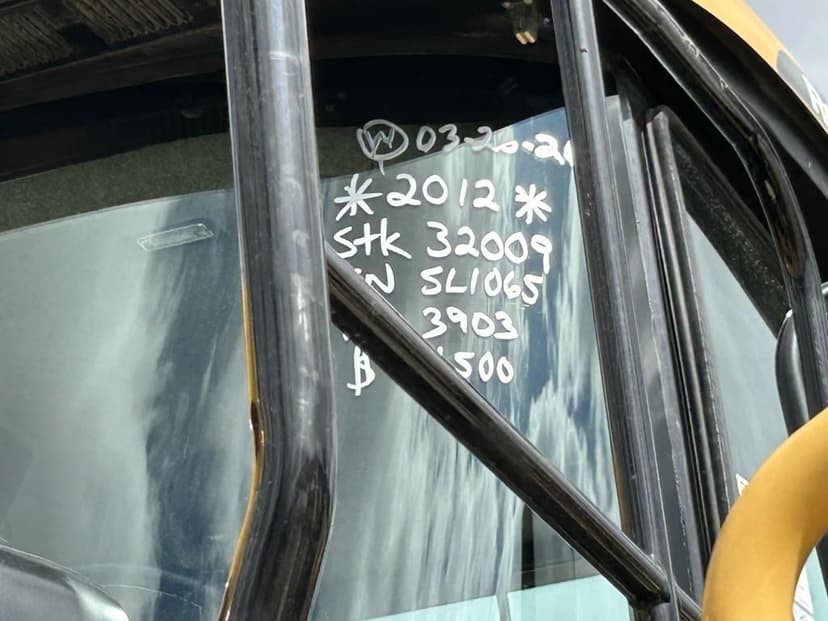 W 03-20-20
* 2012 *
Stk 32009
SN 5L1065
3903
500